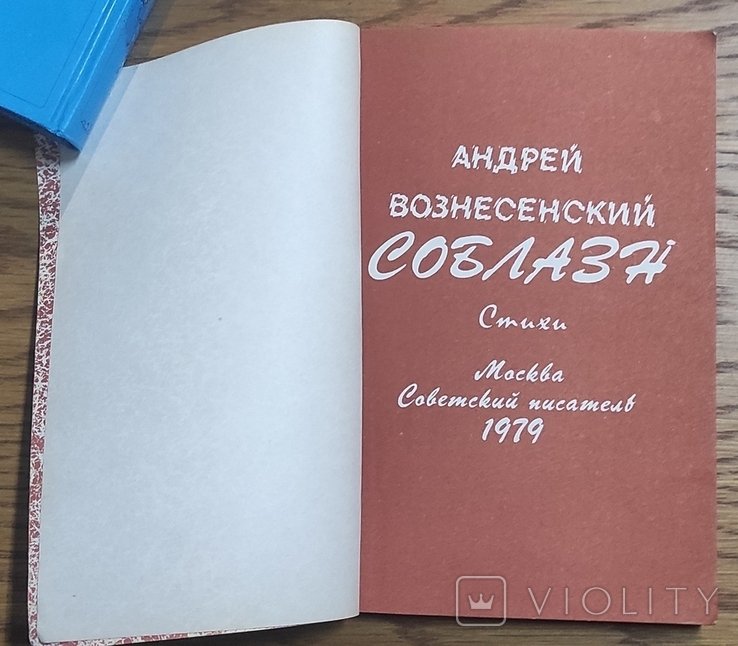 АНДРЕЙ
ВОЗНЕСЕНСКИЙ
СОБЛАЗН
Стихи
Москва
Советский писатель
1979
VIOLITY